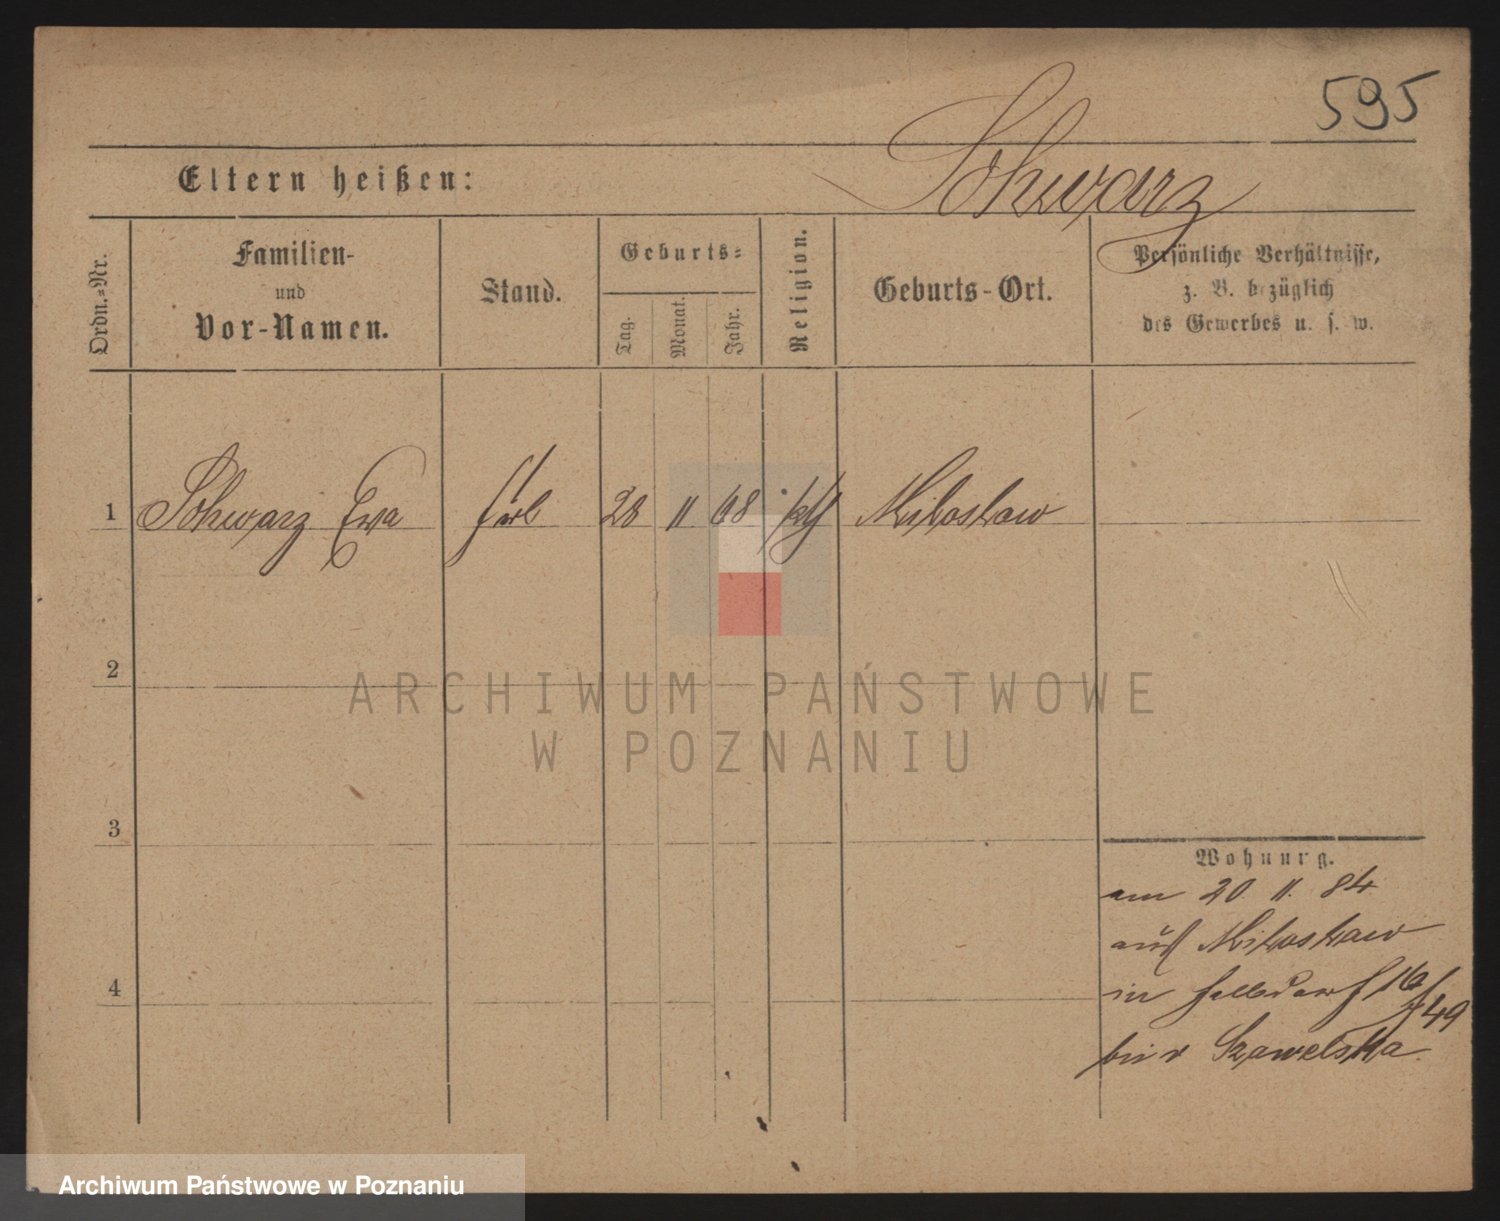 595
Eltern heißen: Schwarz
Ordn.-Nr.
Familien-
und
Vor-Namen.
Stand.
Geburts-
Tag.
Monat.
Jahr.
Religion.
Geburts-Ort.
Persönliche Verhältnisse,
z. B. bezüglich
des Gewerbes u. s. w.
1 Schwarz Ewa 28 11 68 kth Miloslaw
2
3
4
Wohnung.
am 20. 11. 84
aus Miloslaw
in 16/49
bei Szawelska
ARCHIWUM PAŃSTWOWE
W POZNANIU
Archiwum Państwowe w Poznaniu